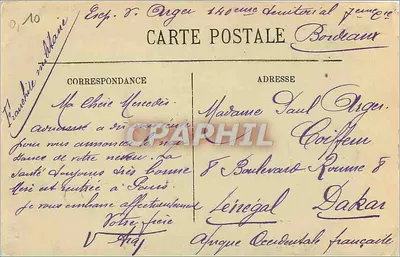 0,10
Franchise militaire
Exp. V. Arger 140eme territorial 7eme Cie
Bordeaux
CARTE POSTALE
CORRESPONDANCE
ADRESSE
Ma Chère Mercedes
a des
pour vous annoncer
dance de votre neveu. La
santé toujours très bonne
Mere est rentrée à Paris
je vous embrasse affectueusement
Votre frère
V
Madame Paul Arger
Coiffeur
8 Boulevard Roume 8
Sénégal Dakar
Afrique Occidentale française
CPARAMA